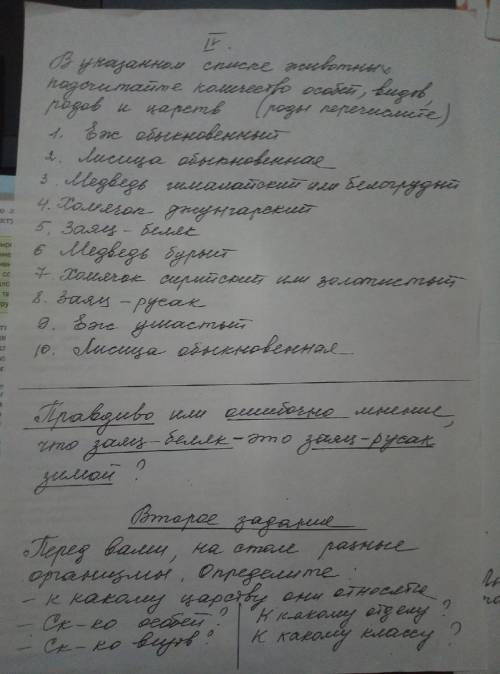 IV.
В указанном списке животных
подсчитайте количество особей, видов,
родов и царств (роды перечислите)
1. Еж обыкновенный
2. Лисица обыкновенная
3. Медведь гималайский или белогрудый
4. Хомячок джунгарский
5. Заяц-беляк
6 Медведь бурый
7. Хомячок сирийский или золотистый
8. Заяц-русак
9. Еж ушастый
10. Лисица обыкновенная
Правдиво или ошибочно мнение,
что заяц-беляк - это заяц-русак
зимой?
Второе задание
Перед вами, на столе разные
организмы. Определите:
- к какому царству они относятся
- Ск-ко особей? К какому отделу?
- Ск-ко видов? К какому классу?